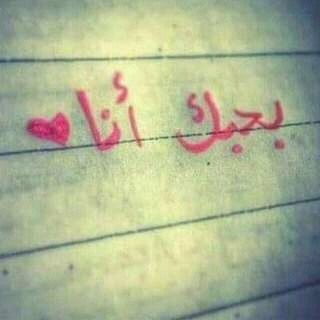 بحبك أنا ♥